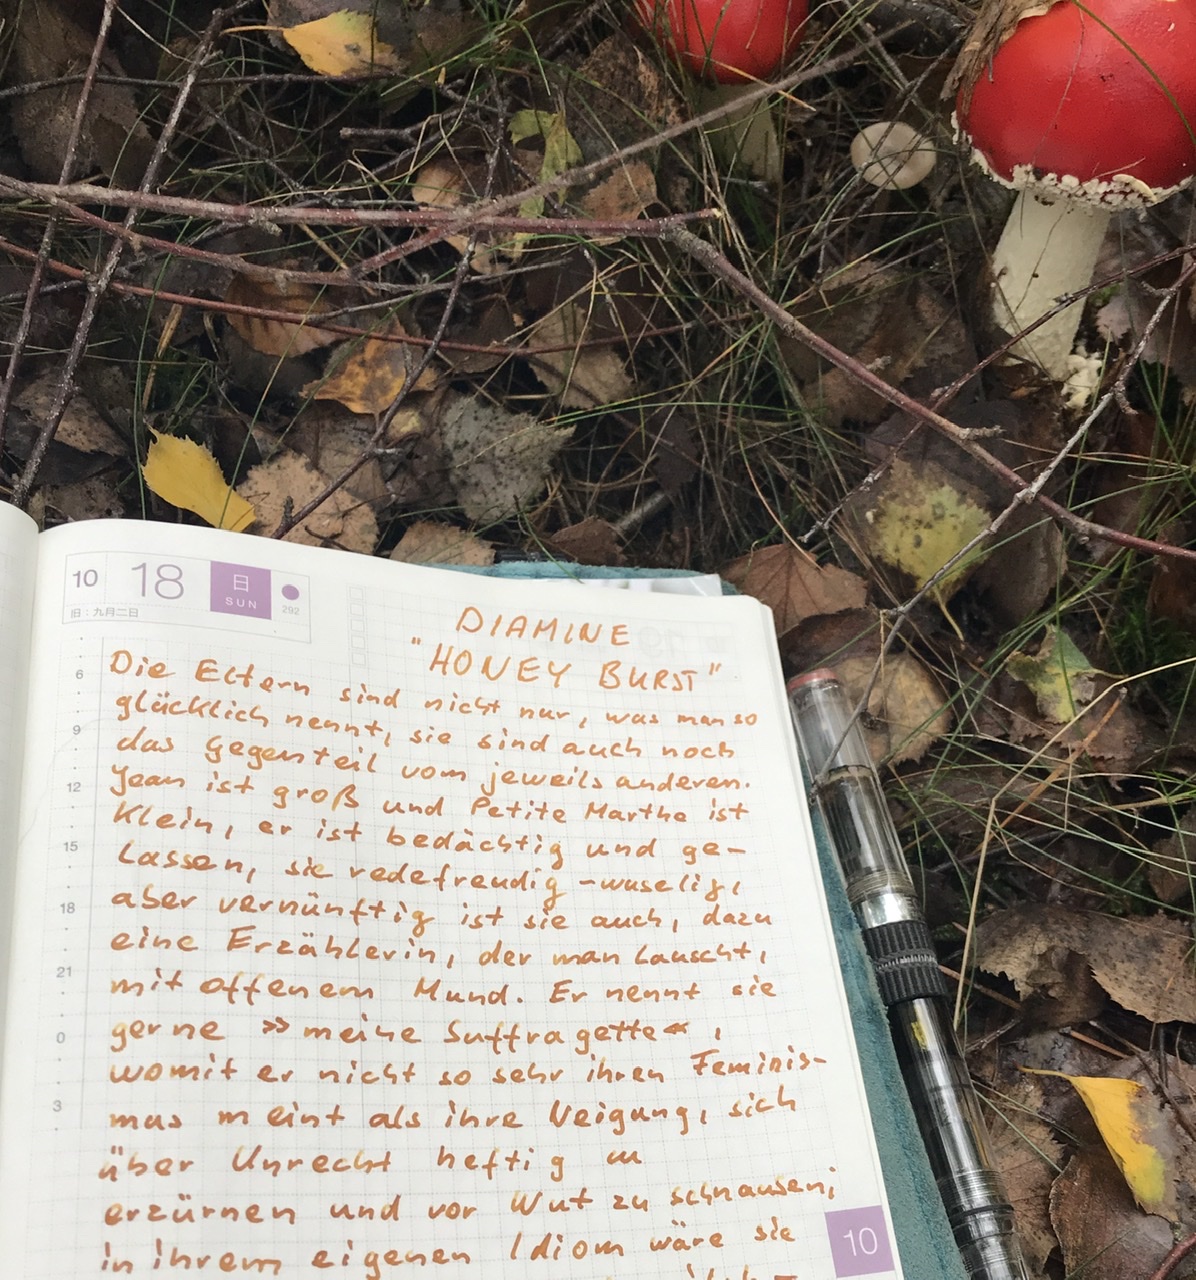 10 18 日 SUN 292
旧:九月二日
DIAMINE
"HONEY BURST"
Die Eltern sind nicht nur, was man so
glücklich nennt, sie sind auch noch
das Gegenteil vom jeweils anderen.
Jean ist groß und Petite Marthe ist
klein, er ist bedächtig und ge-
lassen, sie redefreudig-wuselig,
aber vernünftig ist sie auch, dazu
eine Erzählerin, der man lauscht,
mit offenem Mund. Er nennt sie
gerne »meine Suffragette«,
womit er nicht so sehr ihren Feminis-
mus meint als ihre Neigung, sich
über Unrecht heftig zu
erzürnen und vor Wut zu schnauben;
in ihrem eigenen Idiom wäre sie
6
9
12
15
18
21
0
3
10